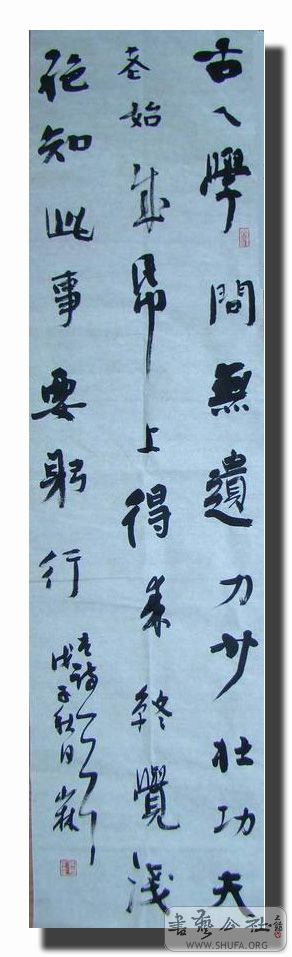 古人學問無遺力少壯功夫
老始成帋上得來終覺淺
絕知此事要躬行
戊子秋日
書藝公社
WWW.SHUFA.ORG